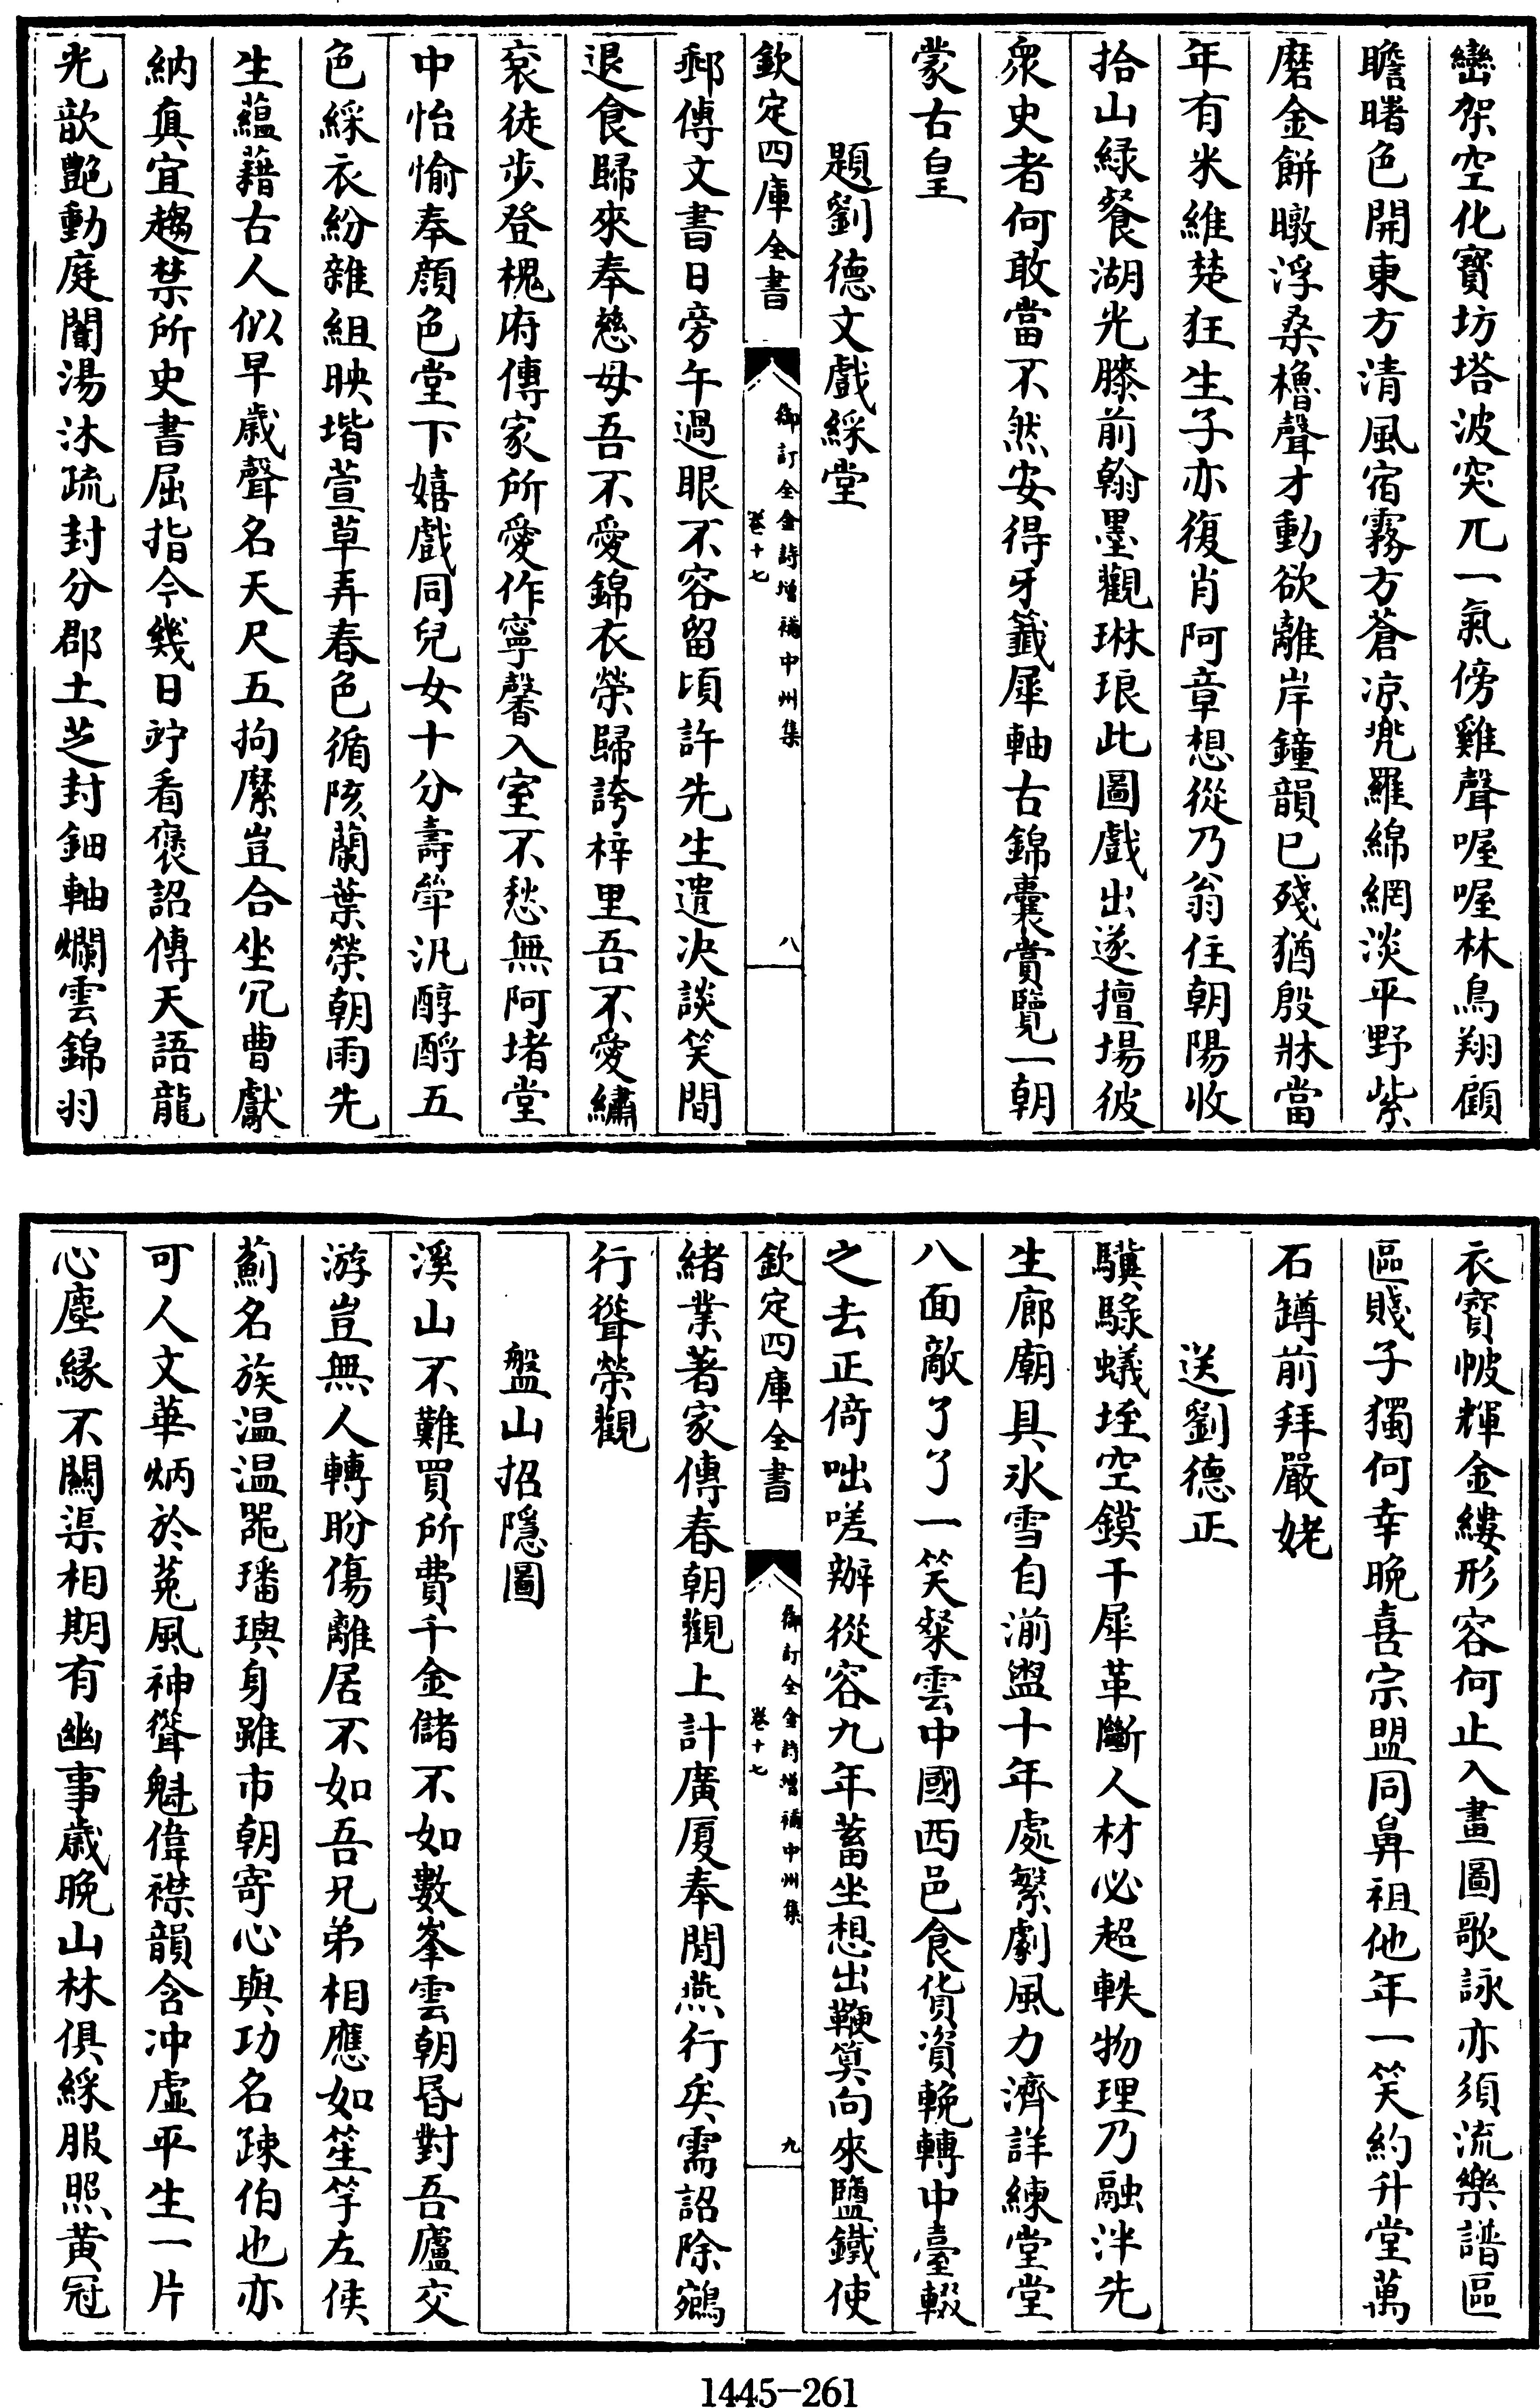 巒架空化寳坊塔波突兀一氣傍雞聲喔喔林鳥翔顧
瞻曙色開東方清風宿霧方蒼凉兠羅綿網淡平野紫
磨金餅暾浮桑櫓聲才動欲離岸鐘韻已殘猶殷牀當
年有米維楚狂生子亦復肖阿章想從乃翁住朝陽收
拾山緑餐湖光滕前翰墨觀琳琅此圖戲出遂擅場彼
衆史者何敢當不然安得牙籖犀軸古錦囊賞覽一朝
蒙右皇
題劉德文戲綵堂
欽定四庫全書
御訂全金詩增補中州集
卷十七
八
郵傳文書日旁午過眼不容留頃許先生遣决談笑間
退食歸來奉慈母吾不愛錦衣榮歸誇梓里吾不愛繡
衮徒步登槐府傳家所愛作寧馨入室不愁無阿堵堂
中怡愉奉顔色堂下嬉戲同兒女十分壽斝汎醇酹五
色綵衣紛雜組映堦萱草弄春色循陔蘭葉榮朝雨先
生藴藉古人似早歲聲名天尺五拘縻豈合坐冗曹獻
納真宜趨禁所史書屈指今幾日竚看褒詔傳天語龍
光歆艶動庭闈湯沐疏封分郡土芝封鈿軸爛雲錦羽
衣寳帔輝金縷形容何止入畫圖歌詠亦須流樂譜區
區賤子獨何幸晚喜宗盟同鼻祖他年一笑約升堂萬
石罇前拜嚴姥
送劉德正
驥騄蟻垤空鏌干犀革斷人材必超軼物理乃融泮先
生廊廟具氷雪自湔盥十年處繁劇風力濟詳練堂堂
八面敵了了一笑粲雲中國西邑食貨資輓轉中臺輟
之去正倚咄嗟辦從容九年蓄坐想出鞭筭向來鹽鐵使
欽定四庫全書
御訂全金詩增補中州集
卷十七
九
緒業著家傳春朝觀上計廣厦奉閒燕行矣需詔除鵷
行聳榮觀
盤山招隱圖
溪山不難買所費千金儲不如數峯雲朝昏對吾廬交
游豈無人轉盼傷離居不如吾兄弟相應如笙竽左侯
薊名族温温噐璠璵身雖市朝寄心與功名疎伯也亦
可人文華炳於菟風神聳魁偉襟韻含冲虚平生一片
心塵縁不關渠相期有幽事歲晚山林俱綵服照黄冠
1445-261